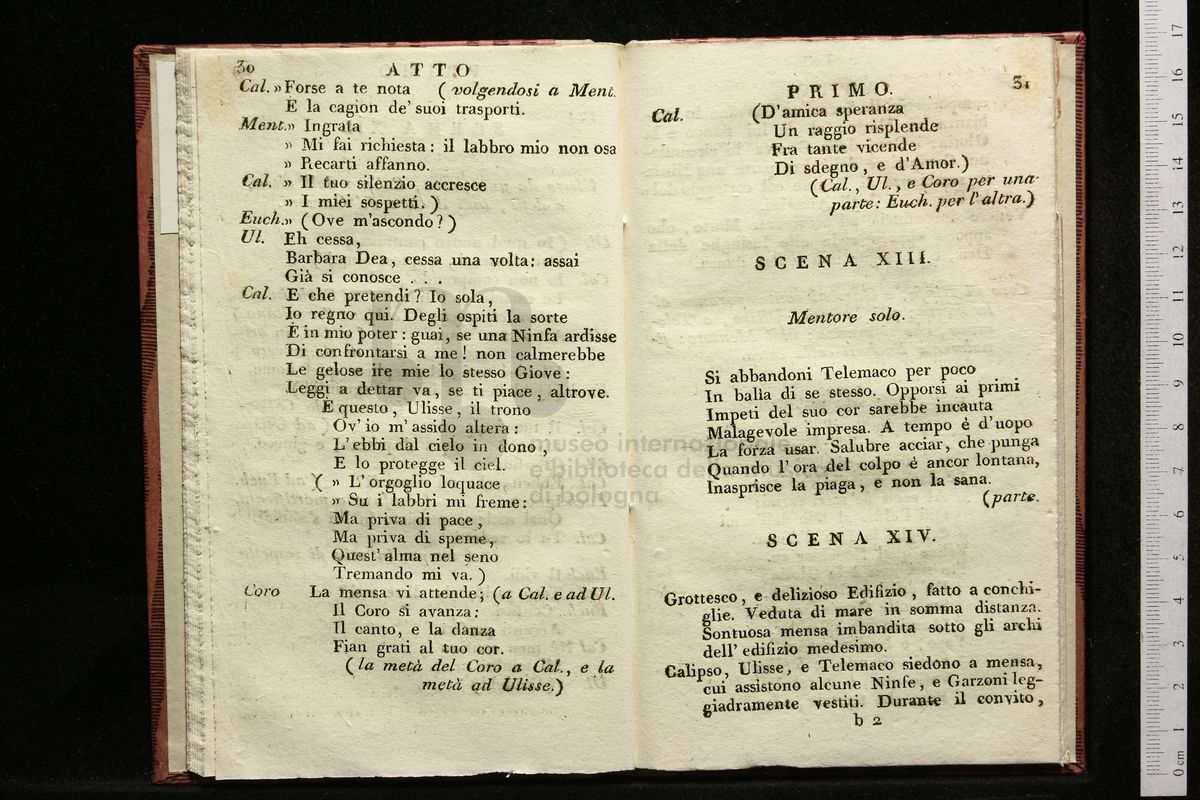 30
ATTO
Cal. » Forse a te nota (volgendosi a Ment.
E la cagion de' suoi trasporti.
Ment. » Ingrata
» Mi fai richiesta: il labbro mio non osa
» Recarti affanno.
Cal. » Il tuo silenzio accresce
» I miei sospetti. )
Euch. » (Ove m'ascondo?)
Ul. Eh cessa,
Barbara Dea, cessa una volta: assai
Già si conosce . . .
Cal. E che pretendi? Io sola,
Io regno qui. Degli ospiti la sorte
È in mio poter: guai, se una Ninfa ardisse
Di confrontarsi a me! non calmerebbe
Le gelose ire mie lo stesso Giove:
Leggi a dettar va, se ti piace, altrove.
E questo, Ulisse, il trono
Ov' io m' assido altera:
L' ebbi dal cielo in dono,
E lo protegge il ciel.
( » L' orgoglio loquace
» Su i labbri mi freme:
Ma priva di pace,
Ma priva di speme,
Quest' alma nel seno
Tremando mi va. )
Coro La mensa vi attende; (a Cal. e ad Ul.
Il Coro si avanza:
Il canto, e la danza
Fian grati al tuo cor.
(la metà del Coro a Cal., e la
metà ad Ulisse.)
PRIMO.
31
Cal. (D'amica speranza
Un raggio risplende
Fra tante vicende
Di sdegno, e d'Amor.)
(Cal., Ul., e Coro per una
parte: Euch. per l'altra.)
SCENA XIII.
Mentore solo.
Si abbandoni Telemaco per poco
In balìa di se stesso. Opporsi ai primi
Impeti del suo cor sarebbe incauta
Malagevole impresa. A tempo è d'uopo
La forza usar. Salubre acciar, che punga
Quando l'ora del colpo è ancor lontana,
Inasprisce la piaga, e non la sana.
(parte.
SCENA XIV.
Grottesco, e delizioso Edifizio, fatto a conchi-
glie. Veduta di mare in somma distanza.
Sontuosa mensa imbandita sotto gli archi
dell' edifizio medesimo.
Calipso, Ulisse, e Telemaco siedono a mensa,
cui assistono alcune Ninfe, e Garzoni leg-
giadramente vestiti. Durante il convito,
b 2
museo internazionale
e biblioteca della musica
di bologna
0 cm 1 2 3 4 5 6 7 8 9 10 11 12 13 14 15 16 17